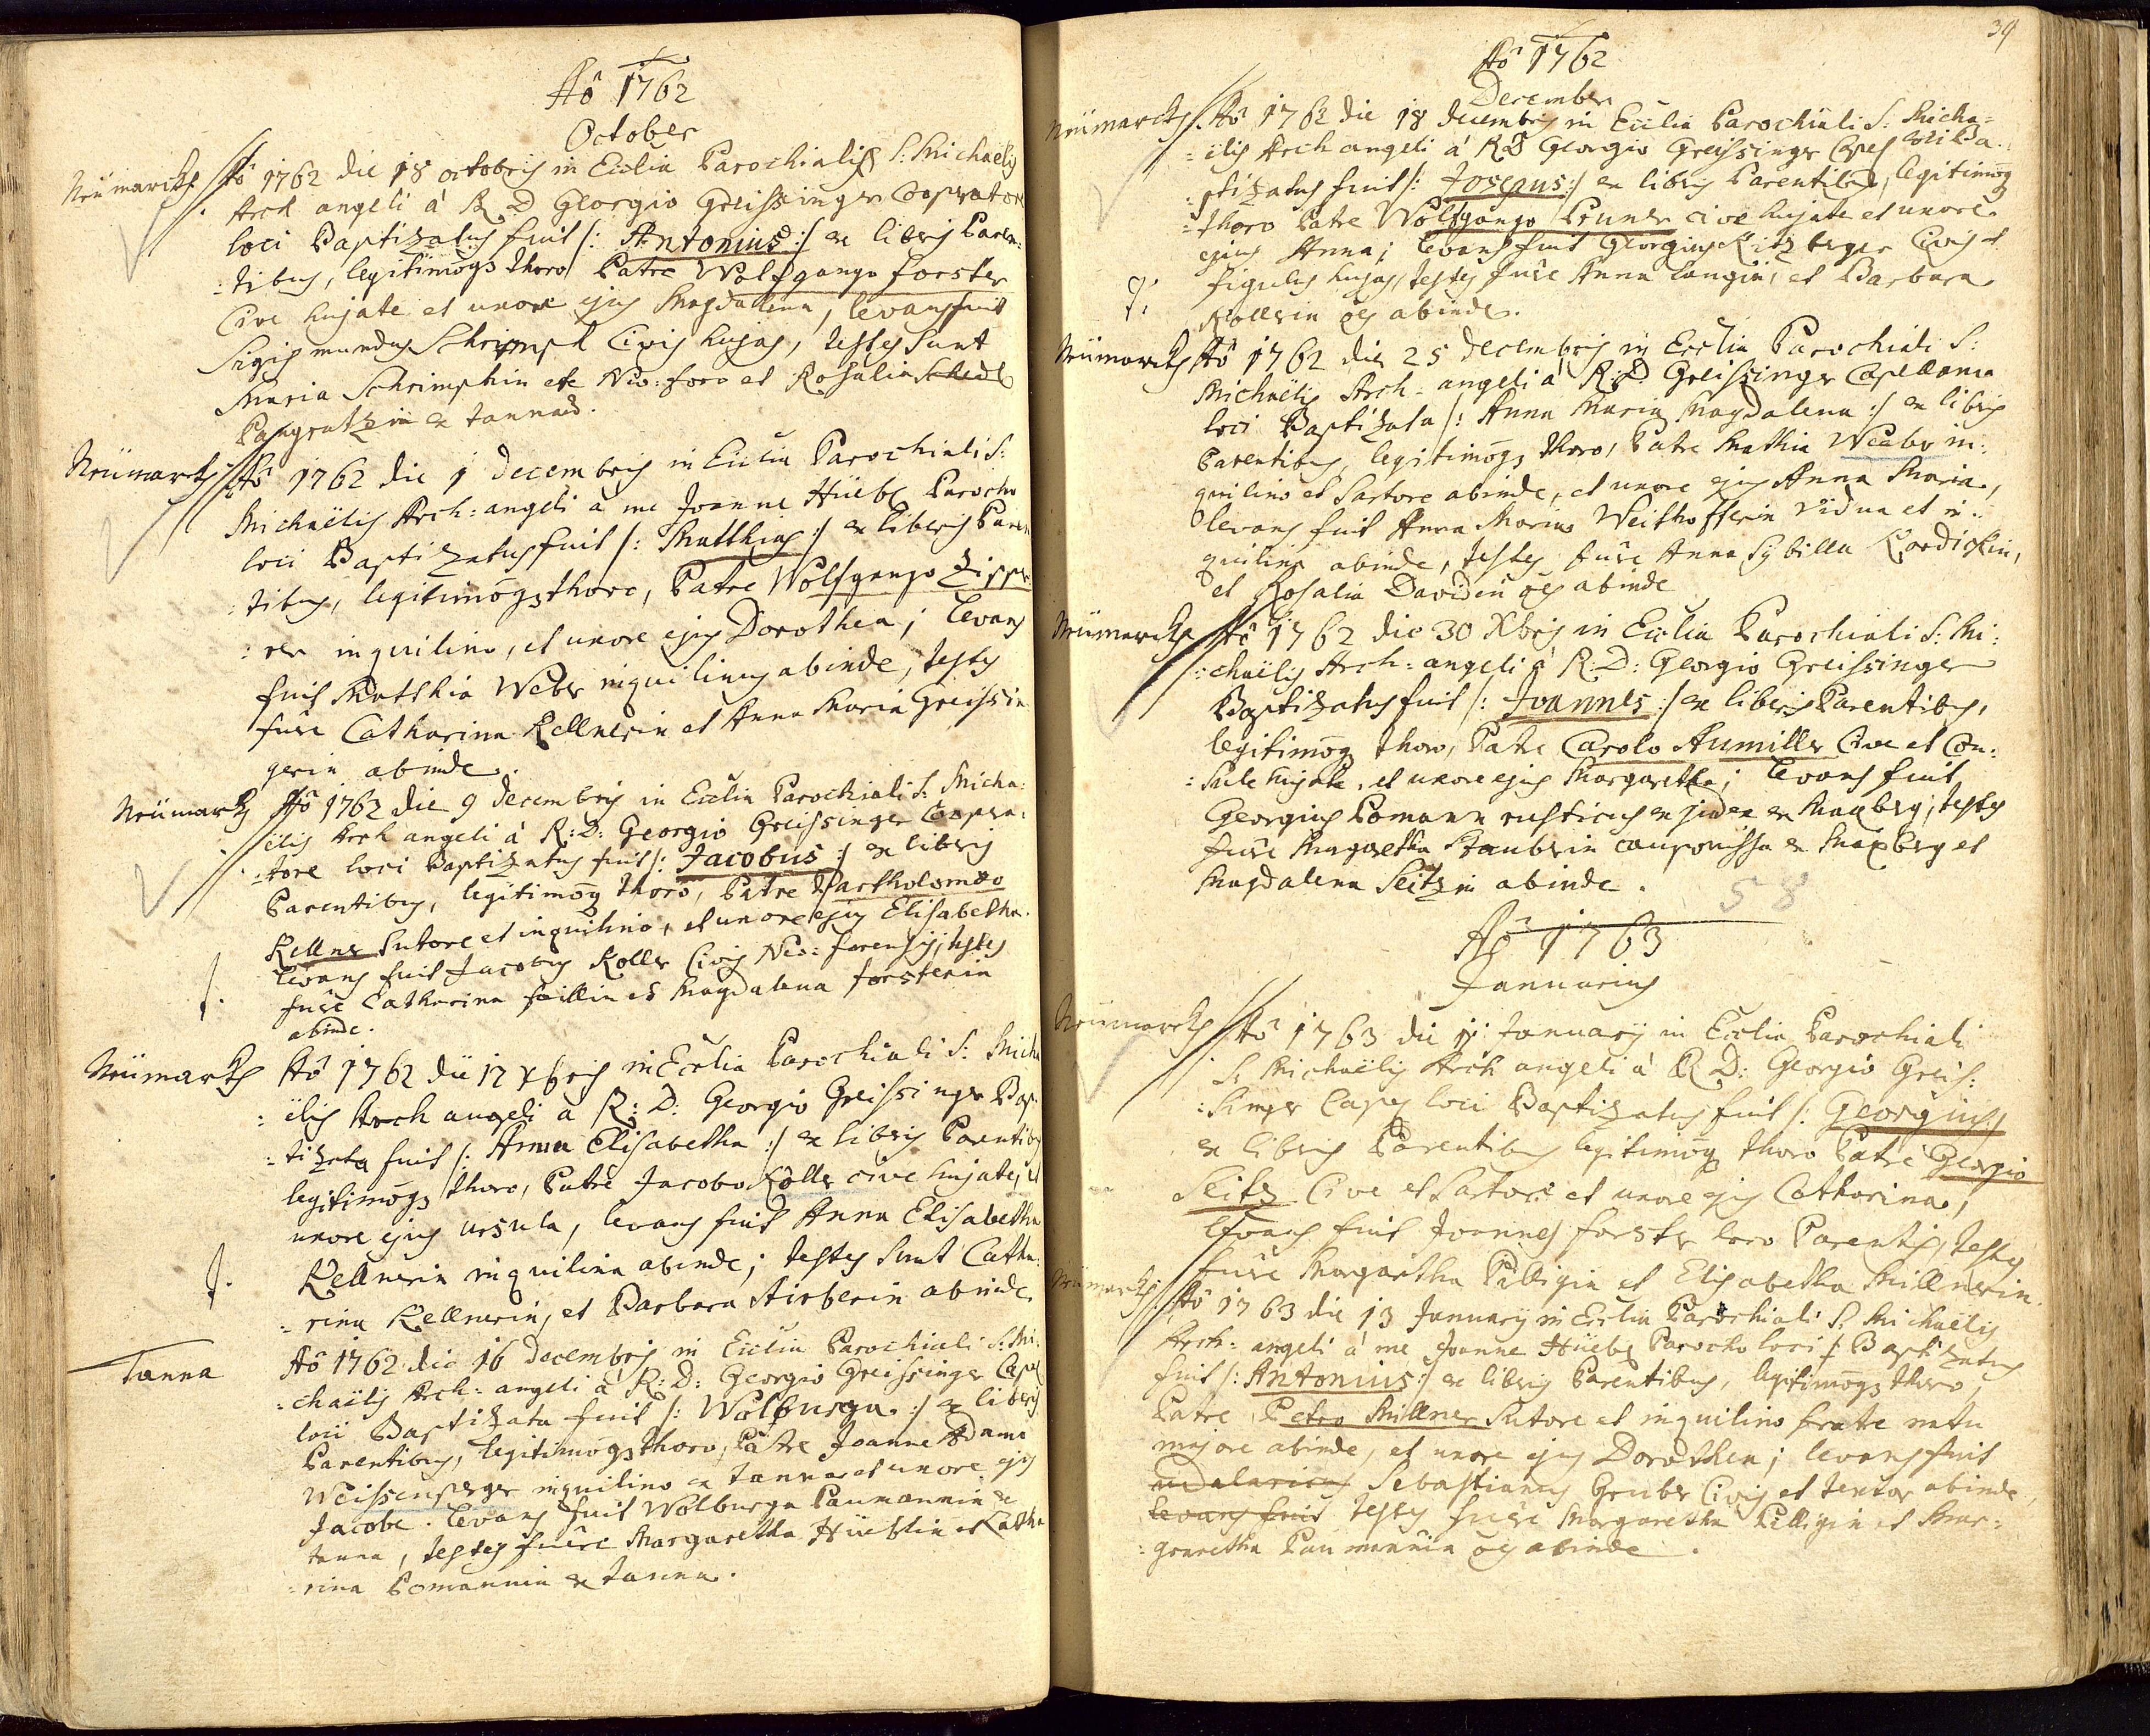 Aô 1762
October
Neümarckh Aô 1762 die 18 octobris in Ecclia Parochiali S: Michaëlis
Arch angeli à R D Georgio Greissinger Coopratore
loci Baptizatus fuit /: Antonius :/ ex libris Paren:
:tibus, legitimoqз thoro Patre Wolfgango forster
Cive hujate et uxore ejus Magdalena, levans fuit
Sigismundus Schrimph Civis hujas, testes sunt
Maria Schrimphin ex Neo: foro et Rosalia Schedl
Pangratzin ex tannad.
Neümarckh Aô 1762 die 1 decembris in Ecclia Parochiali S:
Michaëlis Arch: angeli à me Joanne Hüebr Parocho
loci Baptizatus fuit /: Matthias :/ ex liberis Paren
:tibus, legitimoqз thoro, Patre Wolfgango Zippe
:rer inquilino, et uxore ejus Dorothea; levans
fuit Matthia Weber inquilinus abinde, testes
fuêre Catharina Kellnerin et Anna Maria Greissin
gerin abinde.
Neümarkh Aô 1762 die 9 decembris in Ecclia Parochiali S: Micha:
ëlis Arch angeli à R: D: Georgio Greissinger Coopra:
:tore loci Baptizatus fuit /: Jacobus :/ ex libris
Parentibus, legitimoq thoro, Patre Bartholomæo
Kellner Sutore et inquilino, et uxore ejus Elisabetha.
levans fuit Jacobus Koller Civis Neo: forensis, testes
fuêre Catharina faillin et Magdalena forsterin
abinde.
Neümarkh Aô 1762 die 12 xbris in Ecclia Parochiali S: Micha
:ëlis Arch angeli à R: D: Georgio Greissinger Bap
:tizata fuit /: Anna Elisabetha :/ ex libris Parentibus
legitimoqз thoro, Patre Jacobo Koller cive hujate, et
uxore ejus ursula, levans fuit Anna Elisabetha
Kellnerin inquilina abinde; testes sunt Catha:
:rina Kellnerin, et Barbara Airberin abinde.
Tanna Aô 1762 die 16 decembris in Ecclia Parochiali S: Mi:
:chaëlis Arch: angeli à R: D: Georgio Greissinger Capel
loci Baptizata fuit /: Wolburga :/ ex liberis
Parentibus, legitimoqз thoro, Patre Joanne Adamo
Weissenperger inquilino ex tanna et uxore ejus
Jacobe. levans fuit Wolburga Paumannin ex
tanna, testes fuêre Margaretha Hüeblin et Catha
:rina Pomannin ex tanna.
39
Aô 1762
December
Neümarckh Aô 1762 die 18 decembris in Ecclia Parochiali S: Micha=
=ëlis Archangeli à RD Georgio Greissinger Capel loci Ba:
:ptizatus fuit /: Josepus :/ ex libris Parentibus, legitimoq
:thoro Patre Wolfgango Pruner cive hujate et uxore
ejus Anna; levans fuit Georgius Kitzberger Civis et
figulus hujas, testes fuêre Anna Langin, et Barbara
Kollerin oes abinde.
Neümarckh Aô 1762 die 25 decembris in Ecclia Parochiali S:
Michaëlis Arch-angeli à R:D: Greissinger Capellano
loci Baptizata /: Anna Maria Magdalena :/ ex libris
Parentibus, legitimoqз thoro, Patre Mathia Weeber in:
quilino et Sartore abinde, et uxore ejus Anna Maria,
levans fuit Anna Maria Weithofferin vidua et in:
quilina abinde, testes fuêre Anna Sybilla Kordickin,
et Rosalia Davidin oes abinde
Neümarckh Aô 1762 die 30 Xbris in Ecclia Parochiali S: Mi:
:chaëlis Arch: angeli à R: D: Georgio Greissinger
Baptizatus fuit /: Joannes :/ ex liberis Parentibus,
legitimoq thoro, Patre Carolo Aumiller Cive et Con:
:sule hujate, et uxore ejus Margaretha; levans fuit
Georgius Pomann rusticus et judex ex Maxberg, testes
fuêre Margretha Stauberin cauponissa ex Maxberg et
Magdalena Seitzin abinde.
58
Aô 1763
Januarius
Neümarckh Aô 1763 die 11 January in Ecclia Parochiali
S: Michaëlis Arch angeli à R D: Georgio Greis:
:singer Capel loci Baptizatus fuit /: Georgius :/
ex libris Parentibus legitimoq thoro Patre Georgio
Seitz Cive et Sartore et uxore ejus Catharina,
levans fuit Joannes forster loco Parentis, testes
fuêre Margaretha Pilligin et Elisabetha Millnerin.
Neümarckh Aô 1763 die 13 January in Ecclia Parochiali S: Michaëlis
Arch: angeli à me Joanne Hüeber Parocho loci /: Baptizatus
fuit /: Antonius :/ ex libris Parentibus, legitimoqз thoro,
Patre Petro Millner Sutore et inquilino fratre natu
majore abinde, et uxore ejus Dorothea; levans fuit
udalaricus Sebastianus Gruber Civis et textor abinde,
levans fuit testes fuêre Margaretha Pilligin et Mar:
:garetha Paumannin oes abinde.